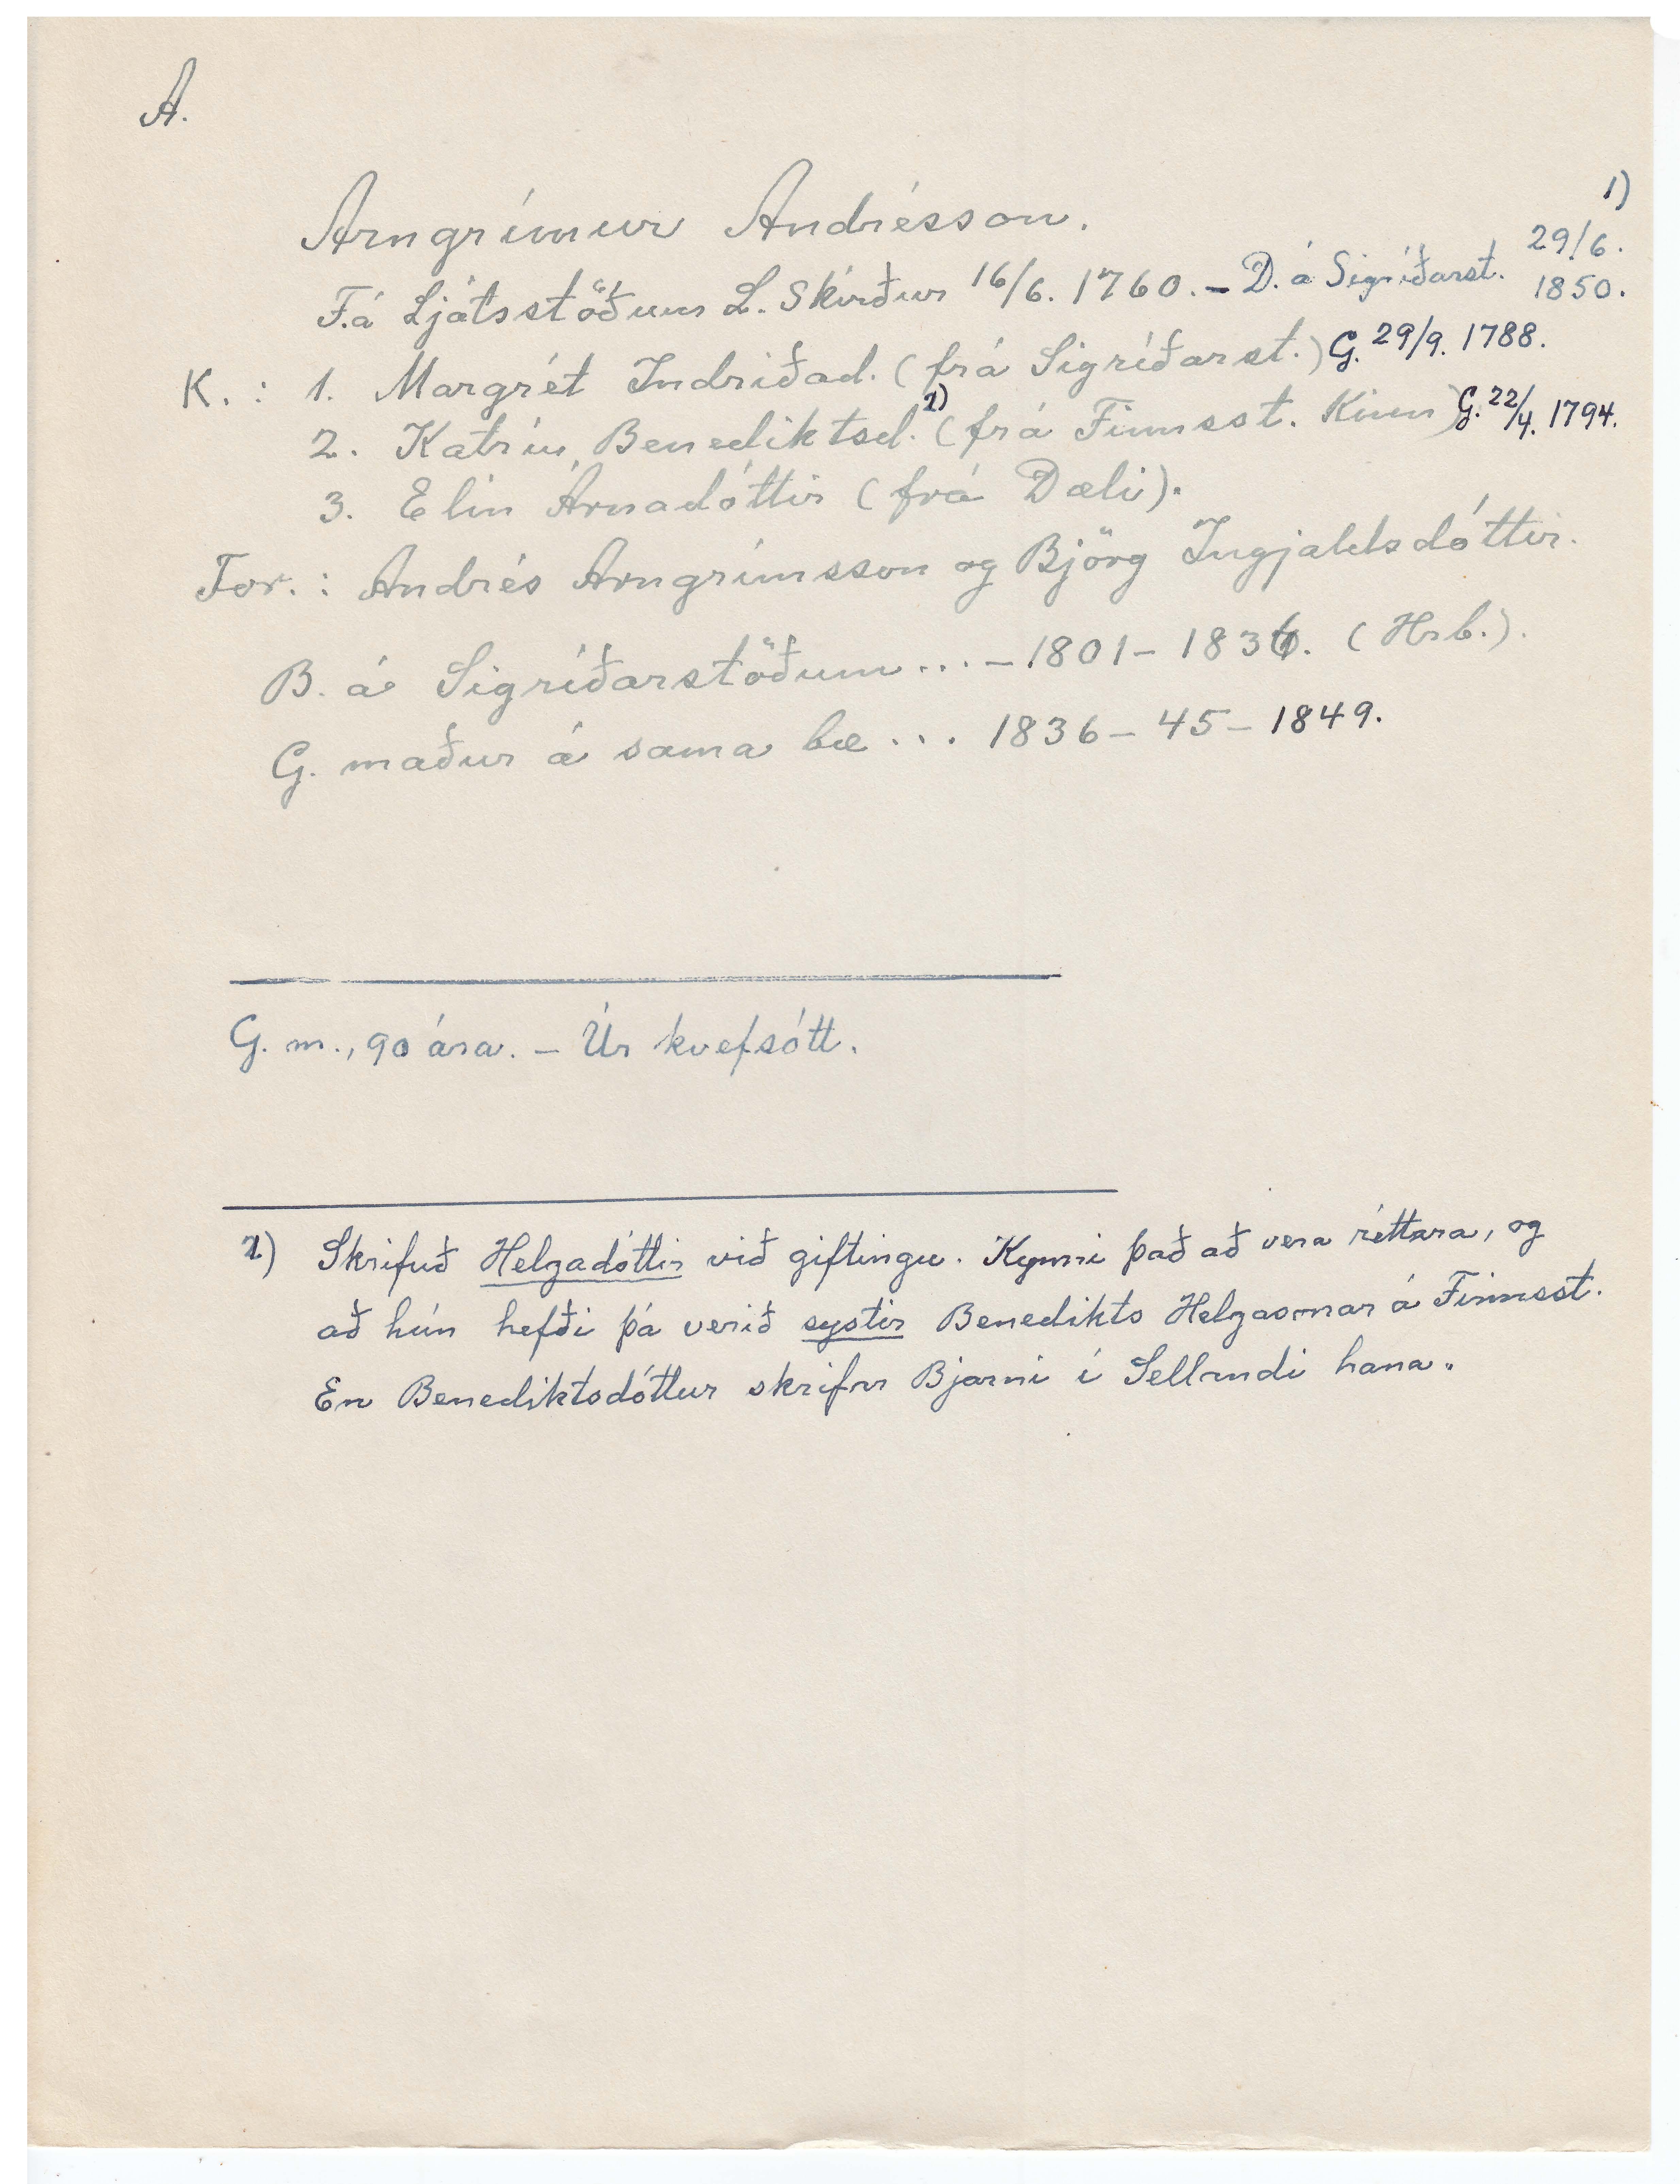 A.
Arngrímur Andrésson. 1)
F.á Ljótsstöðum L. Skírður 16/6. 1760. - D. á Sigríðarst. 29/6. 1850.
K. : 1. Margrét Indriðad. (frá Sigríðarst.) G. 29/9. 1788.
2. Katrín Benediktsd. 2) (frá Finnsst. Kinn) G. 22/4. 1794.
3. Elín Árnadóttir (frá Dæli).
For. : Andrés Arngrímsson og Björg Ingjaldsdóttir.
B. á Sigríðarstöðum ... - 1801 - 1836. (Hrb.).
G. maður á sama bæ ... 1836 - 45 - 1849.
G. m., 90 ára. - Úr kvefsótt.
2) Skrifuð Helgadóttir við giftingu. Kynni það að vera réttara, og
að hún hefði þá verið systir Benedikts Helgasonar á Finnsst.
En Benediktsdóttur skrifar Bjarni í Sellandi hana.